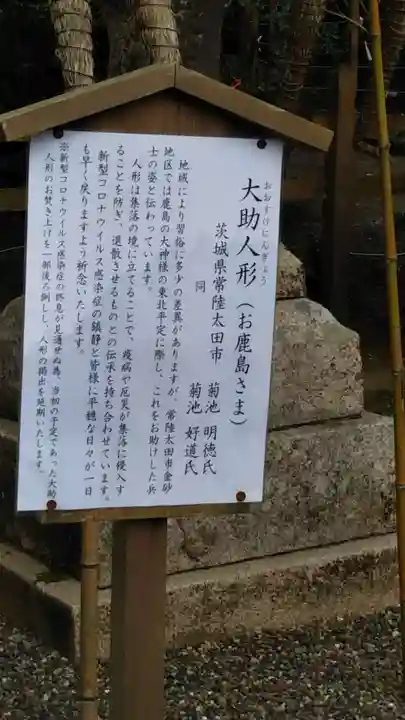 おおすけにんぎょう
大助人形（お鹿島さま）
茨城県常陸太田市　菊池　明徳氏
同　菊池　好道氏
地域により習俗に多少の差異がありますが、常陸太田市金砂
地区では鹿島の大神様の東北平定に際し、これをお助けした兵
士の姿と伝わっています。
人形は集落の境に立てることで、疫病や厄災が集落に侵入す
ることを防ぎ、退散させるものとの伝承を持ち合わせています。
新型コロナウイルス感染症の鎮静と皆様に平穏な日々が一日
も早く戻りますよう祈念いたします。
※新型コロナウイルス感染症の終息が見通せぬ為、当初の予定であった大助
人形のお焚き上げを一部後ろ倒しし、人形の掲出を延期いたします。